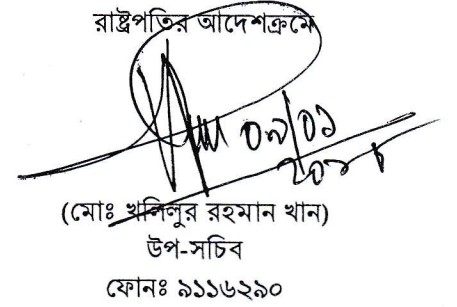 রাষ্ট্রপতির আদেশক্রমে
০৭/০১
২০১৮
(মোঃ খলিলুর রহমান খান)
উপ-সচিব
ফোনঃ ৯১১৬২৯০